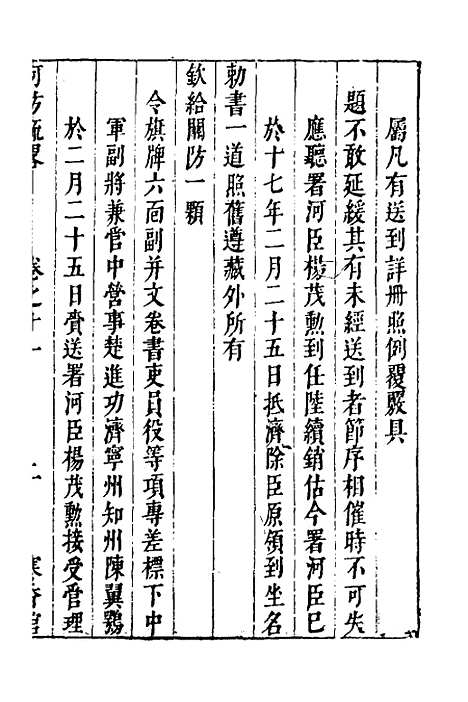 屬凡有送到詳冊照例覆覈具
題不敢延緩其有未經送到者節序相催時不可失
應聽署河臣楊茂勳到任陸續銷估今署河臣已
於十七年二月二十五日抵濟除臣原領到坐名
勅書一道照舊遵藏外所有
欽給關防一顆
令旗牌六面副并文卷書吏員役等項專差標下中
軍副將兼管中營事楚進功濟寧州知州陳翼鶚
於二月二十五日賫送署河臣楊茂勳接受管理
河防疏畧 卷之十一 二